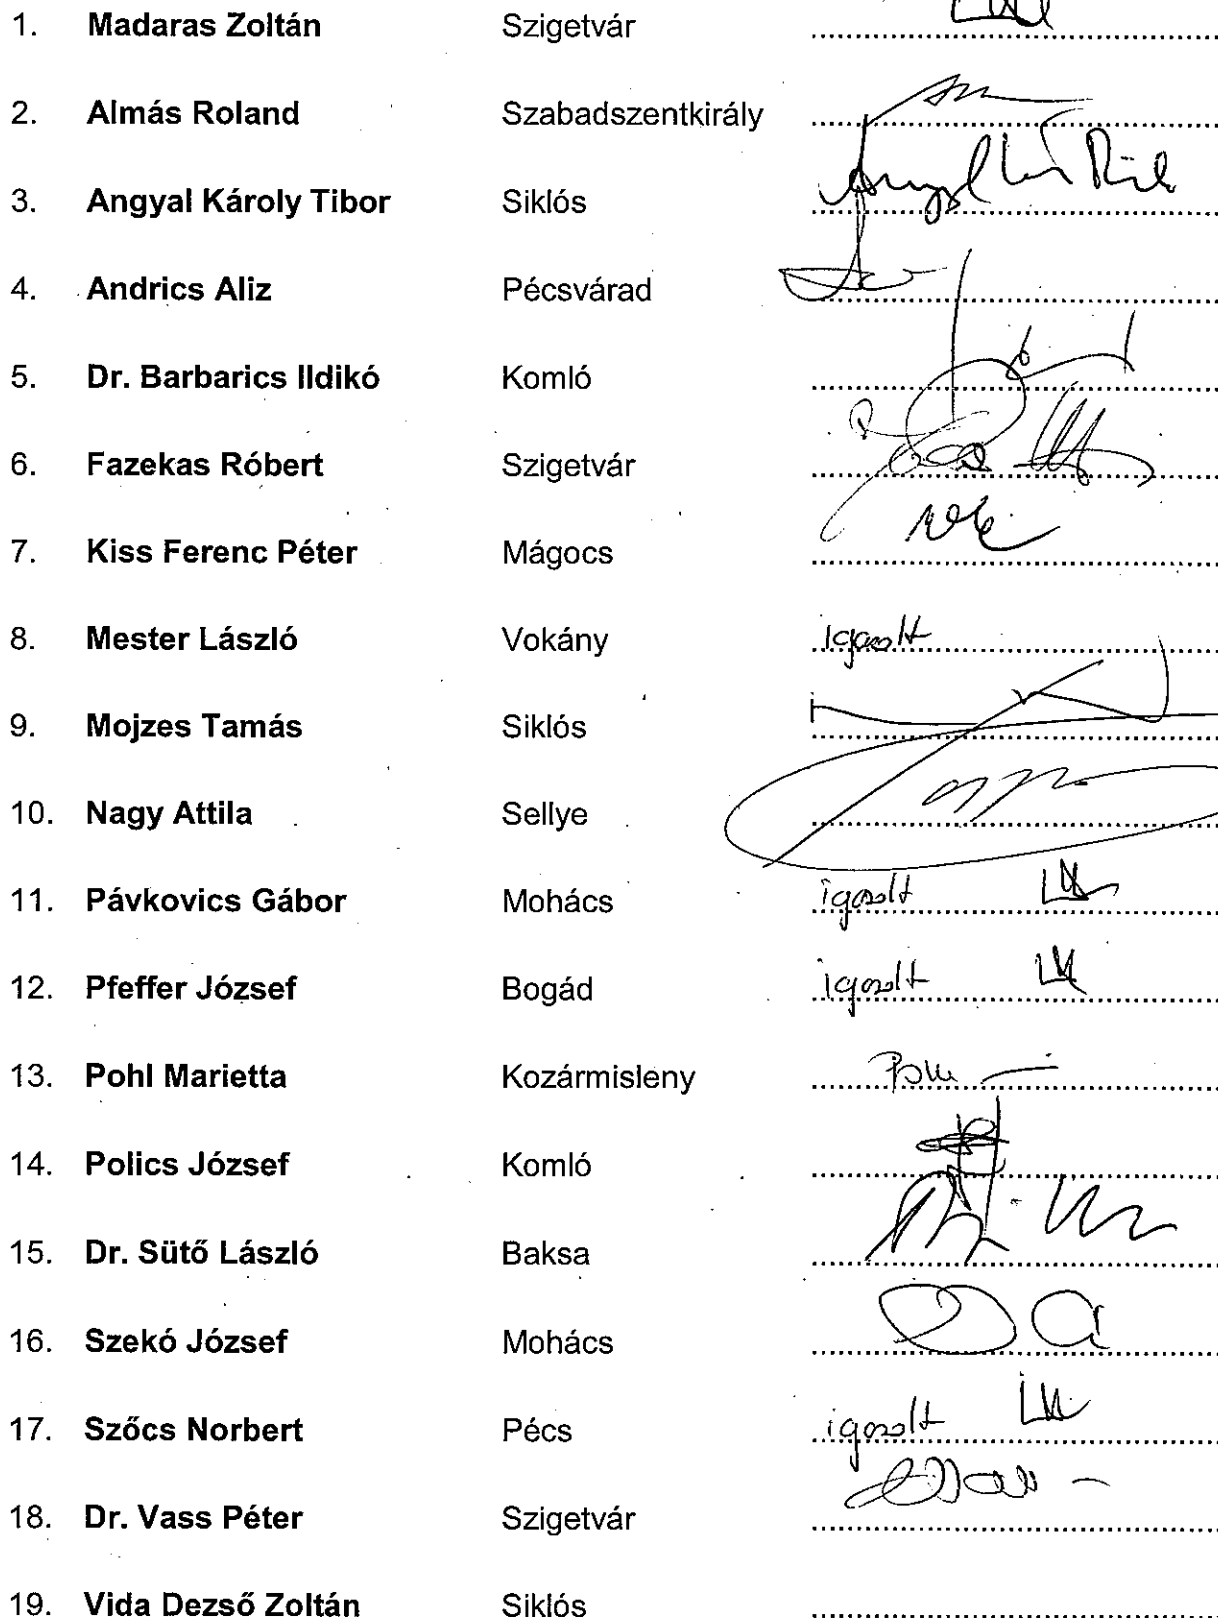 1. Madaras Zoltán Szigetvár
2. Almás Roland Szabadszentkirály
3. Angyal Károly Tibor Siklós
4. Andrics Aliz Pécsvárad
5. Dr. Barbarics Ildikó Komló
6. Fazekas Róbert Szigetvár
7. Kiss Ferenc Péter Mágocs
8. Mester László Vokány igazolt
9. Mojzes Tamás Siklós
10. Nagy Attila Sellye
11. Pávkovics Gábor Mohács igazolt
12. Pfeffer József Bogád igazolt
13. Pohl Marietta Kozármisleny
14. Polics József Komló
15. Dr. Sütő László Baksa
16. Szekó József Mohács
17. Szőcs Norbert Pécs igazolt
18. Dr. Vass Péter Szigetvár
19. Vida Dezső Zoltán Siklós